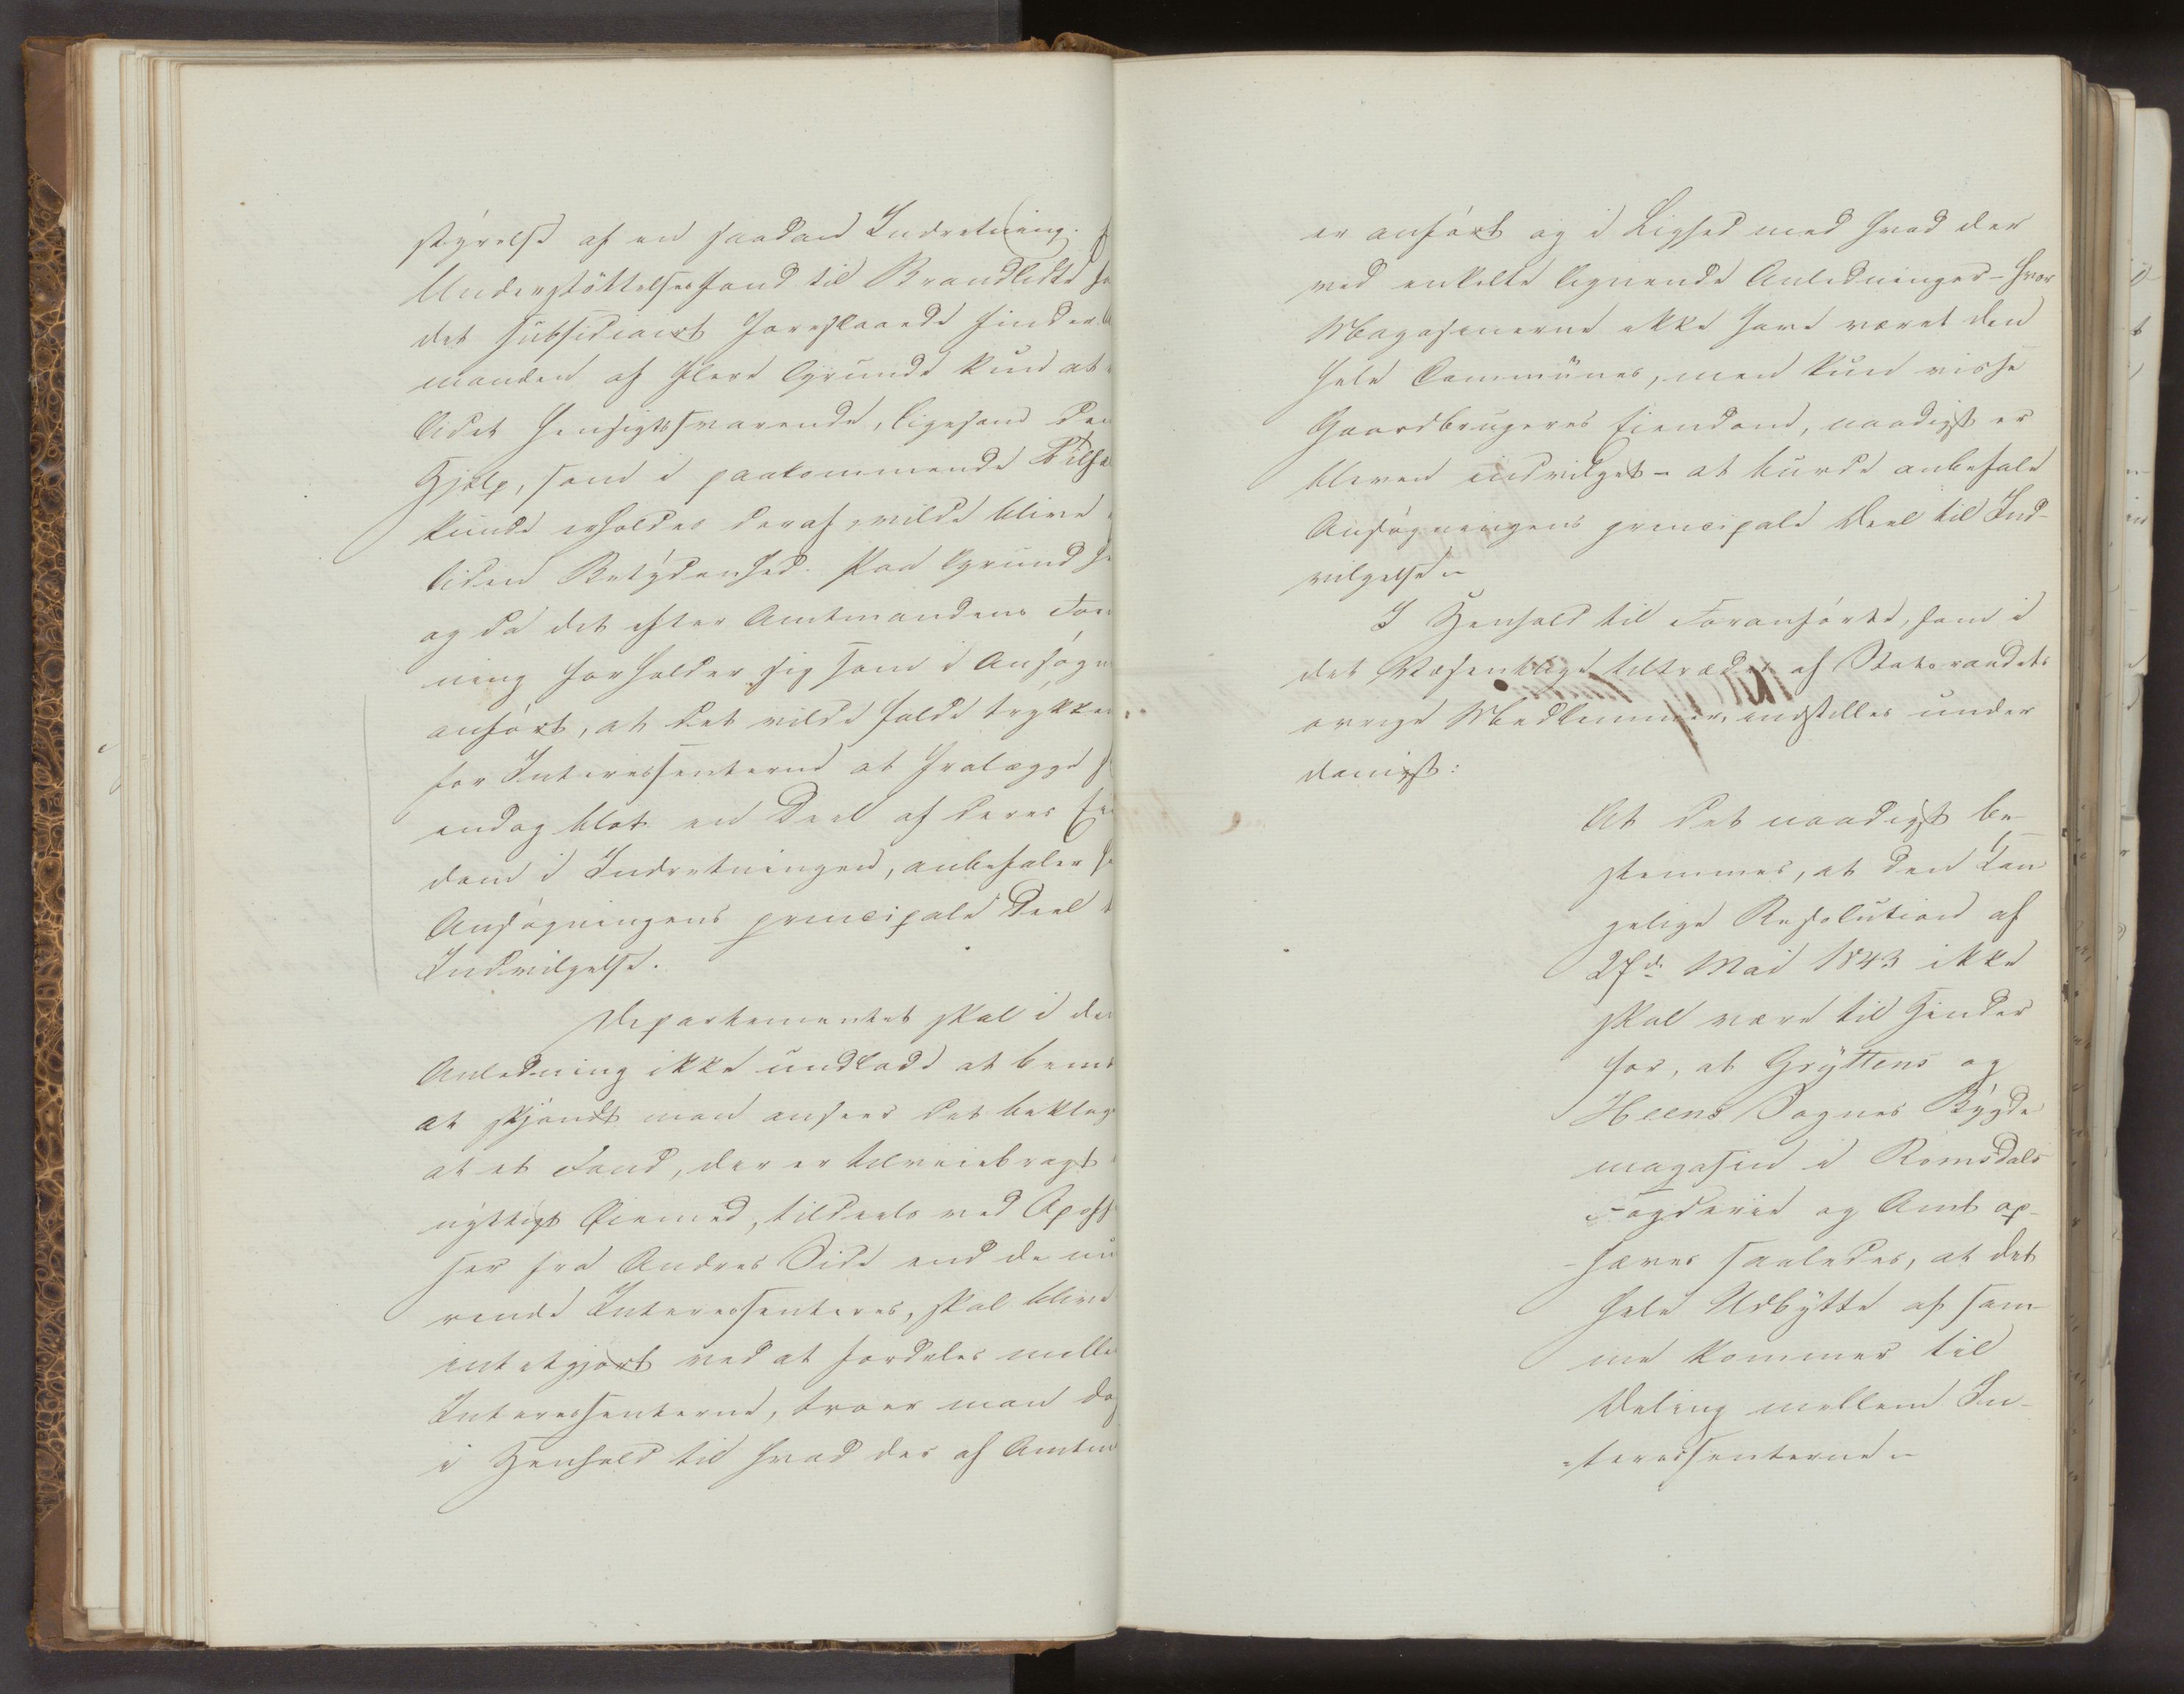 styrelse af en saadan Indretning.
Understöttelsesfond til Brandlidte
det subsidiairt foreslaaede finder
manden af flere Grunde kun at
lidet hensigtssvarende, ligesom den
Hjelp, som i paakommende Tilfæ
kunde erholdes deraf, vilde blive
liden Betydenhed. Paa Grund
og da det efter Amtmandens For
ning forholder sig som i Ansøgn
anført, at det vilde falde trykken
for Interessenterne at fralægge
endog blot en Deel af deres Ei
dom i Indretningen, anbefaler
Ansøgningens principale Deel
Indvilgelse.
Departementet skal i den
Anledning ikke undlade at bem
at skjøndt man ansees det beklage
at et Fond, der er tilveiebragt
nyttigt Øiemed, tildeels ved Opoff
ser fra Andres Side end de nu
rende Interessenteres, skal blive
intetgjort ved at fordeles melle
Interessenterne, troer man dog
i Henhold til hvad der af Amtm
er anført og i Lighed med hvad der
ved enkelte lignende Anledninger - hvor
Magasinerne ikke have været den
hele Communes, men kun visse
Gaardbrugeres Eiendom, naadigst er
bleven indvilget - at burde anbefale
Ansøgningens principale Deel til Ind-
vilgelse.
I Henhold til Foranførte, som i
det Væsentlige tiltrædes af Statsraadets
øvrige Medlemmer, indstilles under
danigst:
At det naadigst be-
stemmes, at den Kon
gelige Resolution af
27de Mai 1843 ikke
skal være til Hinder
for, at Gryttens og
Heens Sognes Bygde
magasin i Romsdals
Fogderie og Amt op-
hæves saaledes, at det
hele Udbytte af sam-
me kommer til
Deling mellem In-
teressenterne.